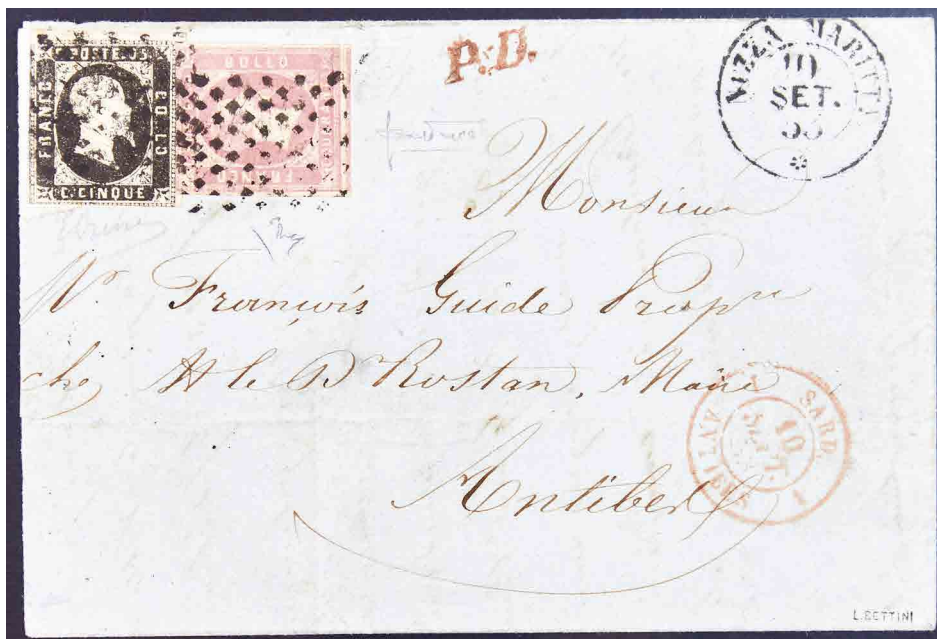 C. POSTE. 5
FRANCO
C. CINQUE
BOLLO
FRANCO
P.D.
NIZZA MARITTA
10
SET.
53
Monsieur
Mr François Guide Propre
chez Mr le Dr Rostan, Maire
Antibes
SARD.
10
SEPT.
53
ANTIBES
1
L. BETTINI